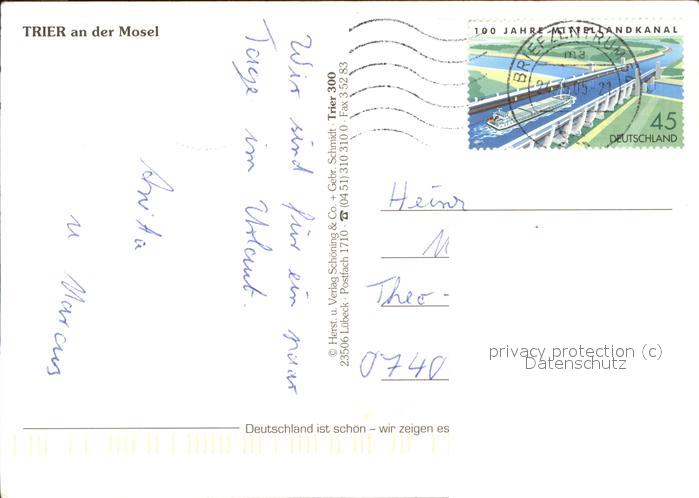 TRIER an der Mosel
Wir sind für ein paar
Tage im Urlaub.
Anita
u Marcus
© Herst. u. Verlag Schöning & Co. + Gebr. Schmidt · Trier 300
23506 Lübeck · Postfach 1710 · ☎ (04 51) 310 310 0 · Fax 3 52 83
100 JAHRE MITTELLANDKANAL
45
DEUTSCHLAND
BRIEFZENTRUM
ma
Heinz
Theo-
0740
privacy protection (c)
Datenschutz
Deutschland ist schön – wir zeigen es